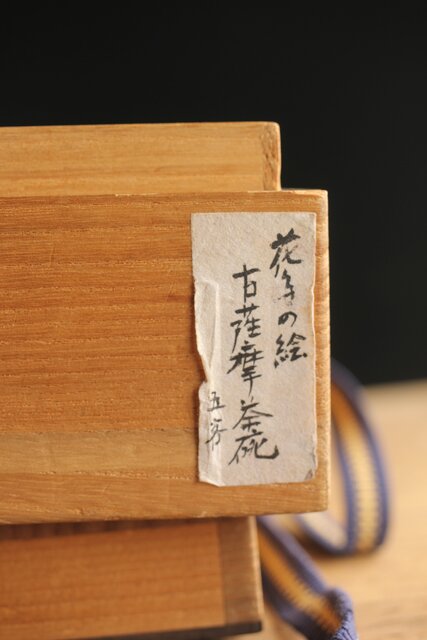 花鳥の絵
古薩摩茶碗
五客